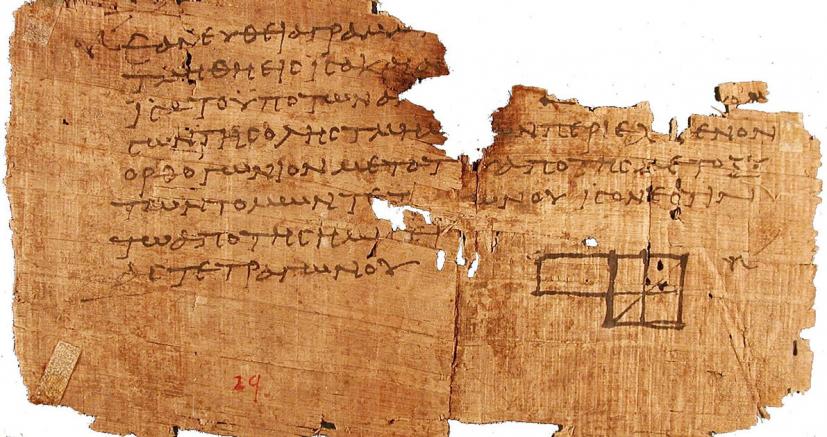 ΕΑΝ ΕΥΘΕΙΑ ΓΡΑΜΜ
ΤΜΗΘΗ ΕΙϹ ΙϹΑ ΚΑΙ Α
ΙϹΑ ΤΟ ΥΠΟ ΤΩΝ Α
ϹΩΝ ΤΗϹ ΟΛΗϹ ΤΜΗ ΩΝ ΠΕΡΙΕΧ ΜΕΝΟΝ
ΟΡΘΟΓΩΝΙΟΝ ΜΕΤΑ ΤΟΥ ΑΠΟ ΤΗϹ ΜΕΤΟΞΥ
ΤΩΝ ΤΟΜΩΝ ΤΕΤ ΩΝΟΥ ΙϹΟΝ ΕϹΤΙΝ
ΤΩ ΑΠΟ ΤΗϹ ΗΜΙ Ε
ΑϹ ΤΕΤΡΑΓΩΝΟΥ
29